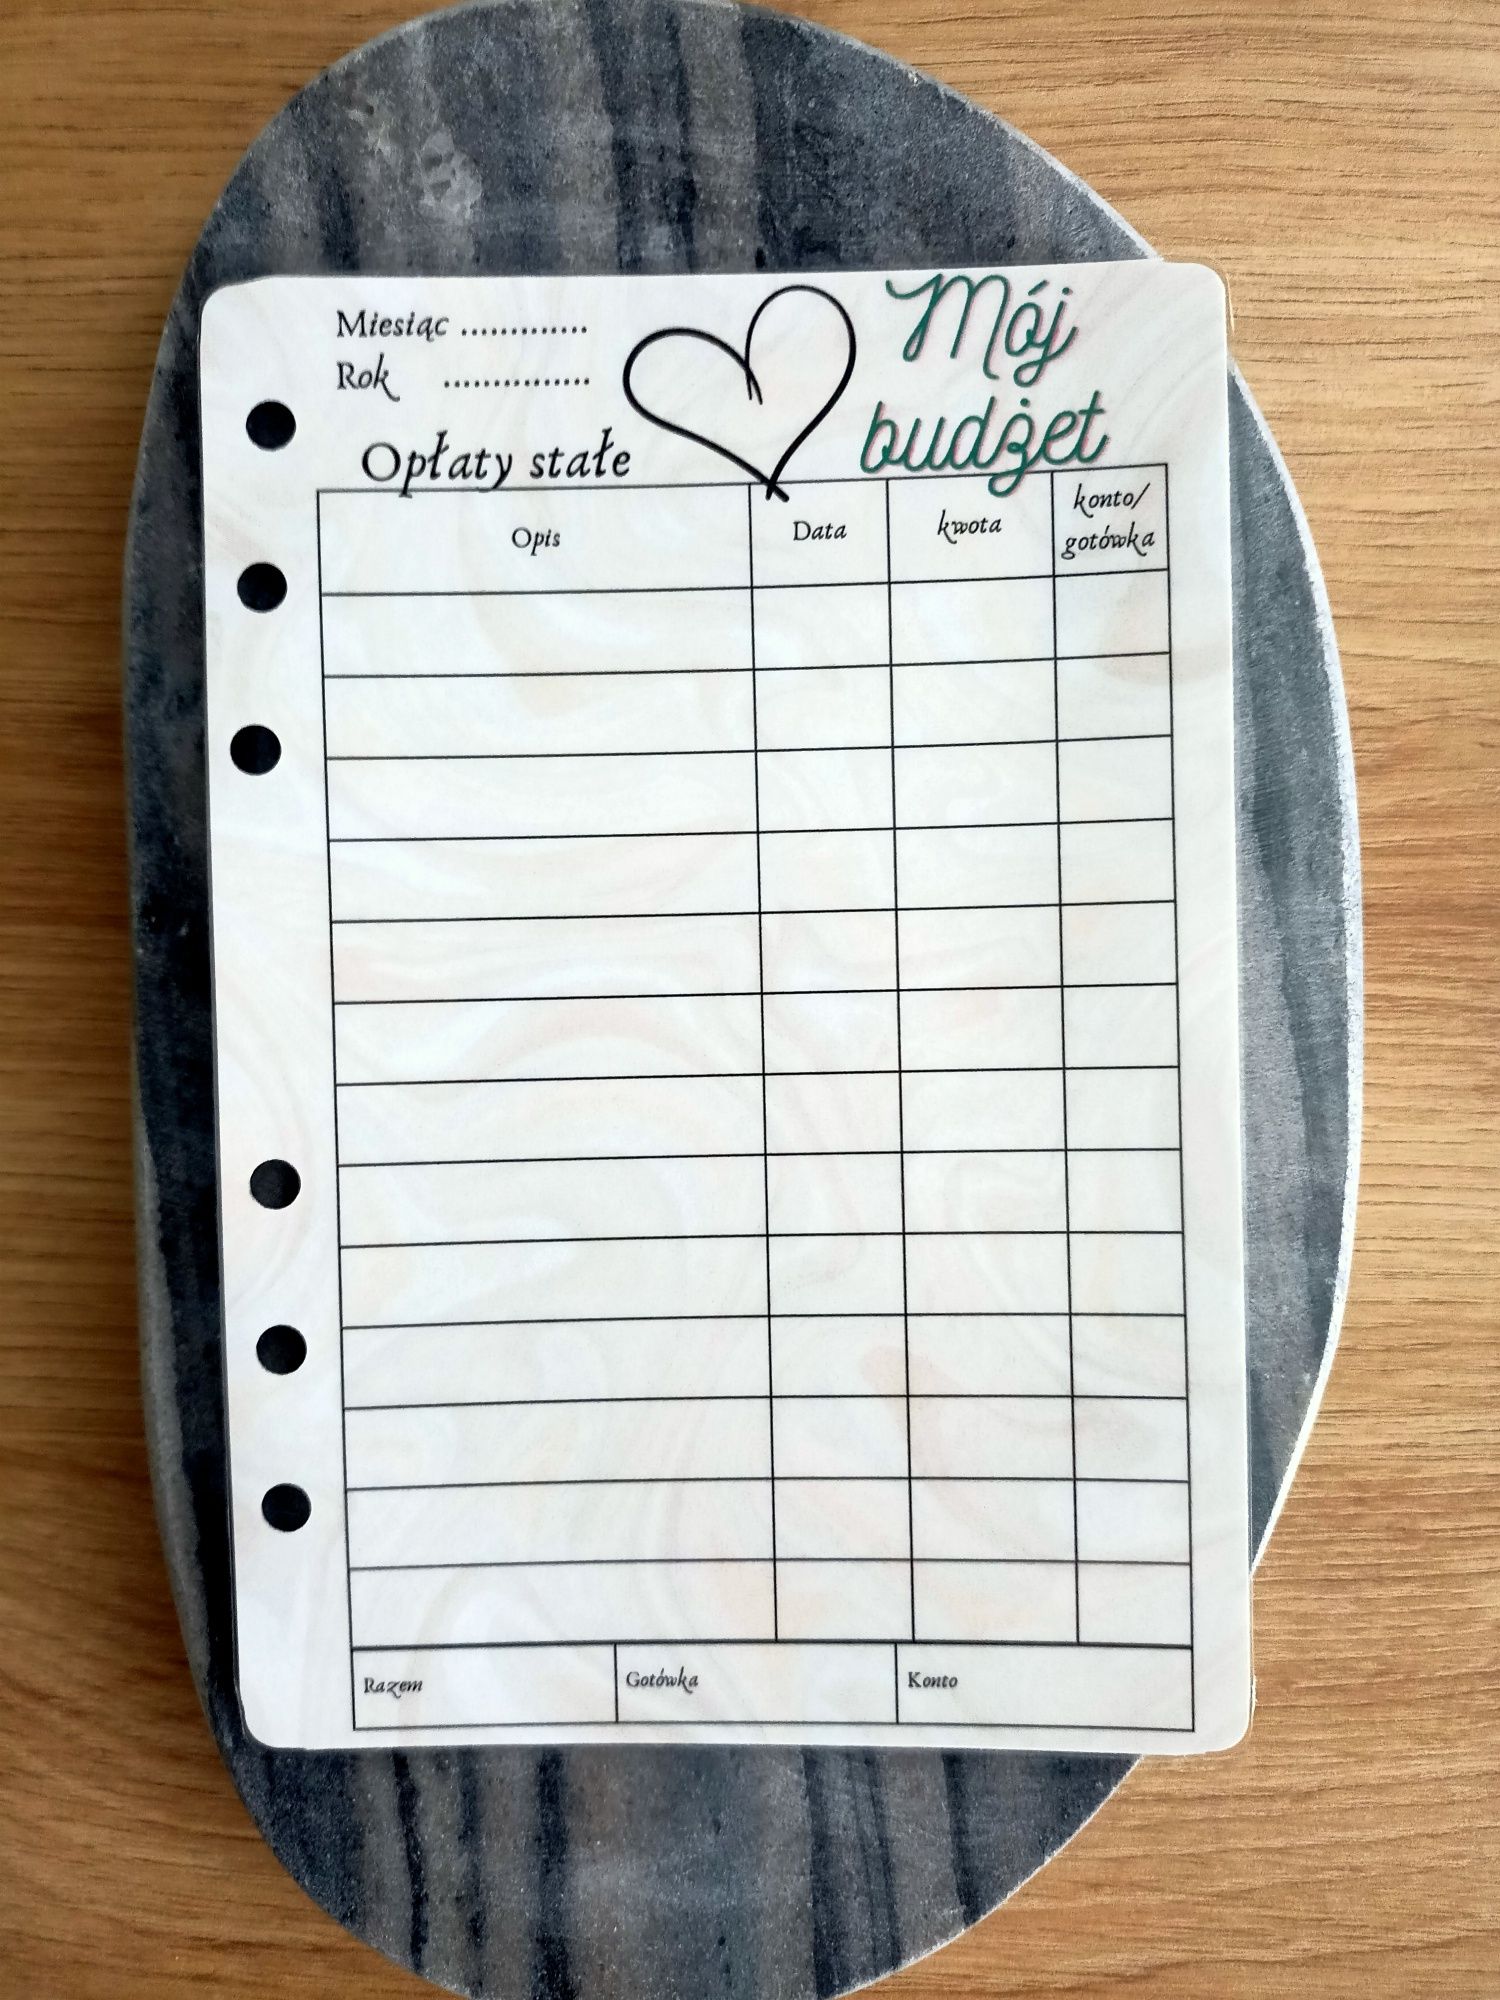 Miesiąc .............
Rok ...............
Mój
budżet
Opłaty stałe
Opis
Data
kwota
konto/
gotówka
Razem
Gotówka
Konto